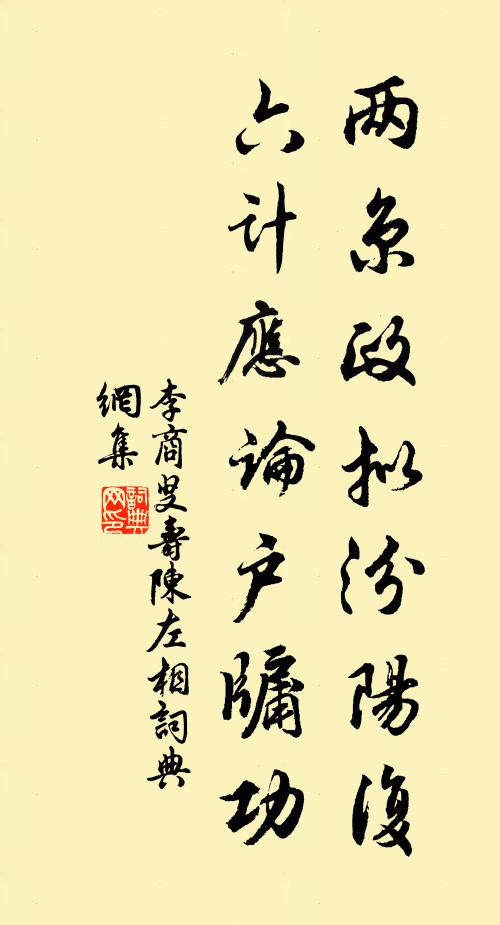 两京政拟汾陽復
六计應論户牖功
李商叟壽陳左相詞典
網集
詞典
网印